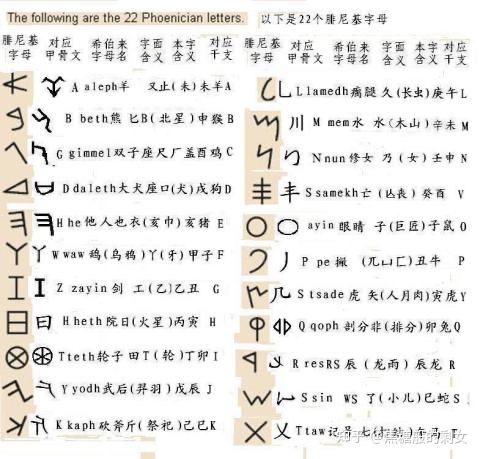 The following are the 22 Phoenician letters. 以下是22个腓尼基字母
腓尼基 对应 希伯来 字面 本字 对应
字母 甲骨文 字母名 含义 含义 干支
A aleph羊 又止(未)未羊A
B beth熊 匕B(北星)申猴B
G gimmel双子座尺厂盖酉鸡C
D daleth大犬座口(犬)戌狗D
H he他人也衣(亥巾)亥猪 E
W waw鸡(乌鸦)丫(牙)甲子F
Z zayin剑 工(乙)乙丑 G
H heth院日(火星)丙寅 H
T teth轮子 田T(轮)丁卯I
Y yodh武后(羿羽)戊辰J
K kaph砍斧斤(祭祀)己巳K
腓尼基 对应 希伯来 字面 本字 对应
字母 甲骨文 字母名 含义 含义 干支
L lamedh瘸腿 久(长虫)庚午L
M mem水 水(木山)辛未M
N nun修女 乃(女)壬申N
S samekh亡(丛丧)癸酉 V
ayin眼睛 子(巨匠)子鼠O
P pe 撇 (兀山匚)丑牛 P
S tsade虎 矢(人月肉)寅虎Y
Q qoph剖分非(排分)卯兔Q
R resRS 辰(龙雨)辰龙R
S sin WS 了(小儿)巳蛇S
T taw记号 七 午马 T
知乎